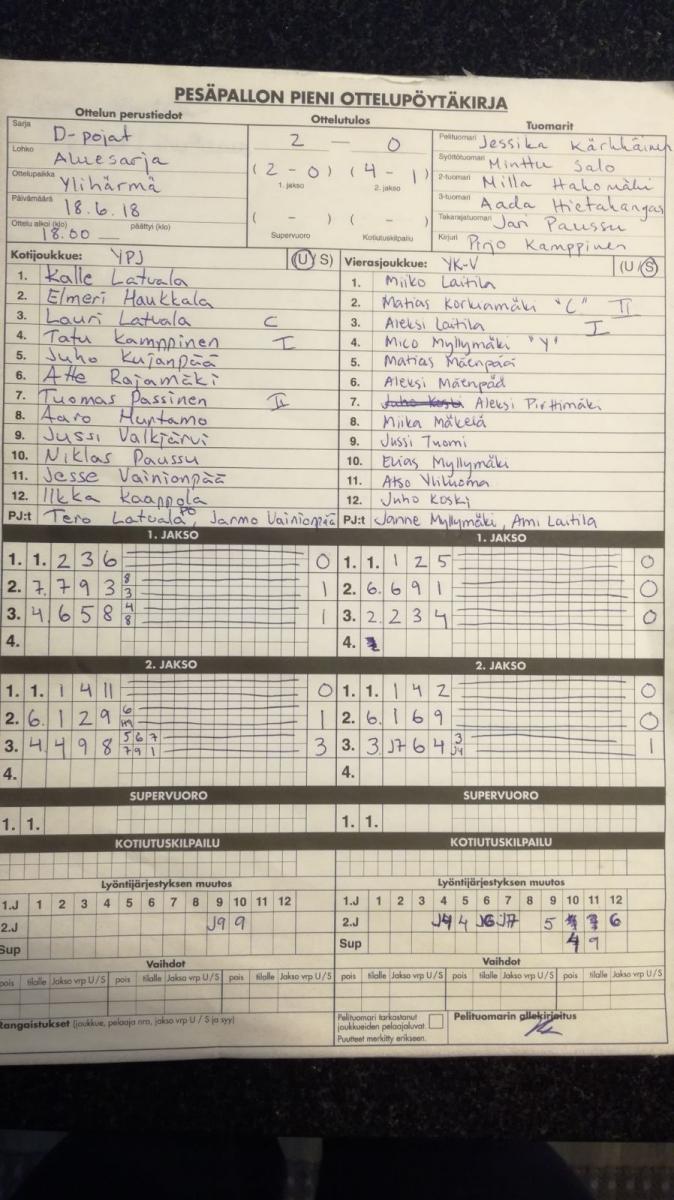 PESÄPALLON PIENI OTTELUPÖYTÄKIRJA
Ottelun perustiedot
Sarja D-pojat
Lohko Aluesarja
Ottelupaikka Ylihärmä
Päivämäärä 18.6.18
Ottelu alkoi (klo) 18.00 päättyi (klo)
Ottelutulos
2 — 0
(2 - 0) (4 - 1)
1. jakso 2. jakso
( - ) ( - )
Supervuoro Kotiutuskilpailu
Tuomarit
Pelituomari Jessika Kärkkäinen
Syöttötuomari Minttu Salo
2-tuomari Milla Hakomäki
3-tuomari Aada Hietakangas
Takarajatuomari Jari Paussu
Kirjuri Pirjo Kamppinen
Kotijoukkue: YPJ (U/S)
1. Kalle Latvala
2. Elmeri Haukkala
3. Lauri Latvala C
4. Tatu Kamppinen I
5. Juho Kujanpää
6. Atte Rajamäki
7. Tuomas Passinen II
8. Aaro Huntamo
9. Jussi Valkjärvi
10. Niklas Paussu
11. Jesse Vainionpää
12. Ilkka Kaappola
PJ:t Tero Latvala, Jarmo Vainionpää
Vierasjoukkue: YK-V (U/S)
1. Miiko Laitila
2. Matias Korkiamäki "C" II
3. Aleksi Laitila I
4. Mico Myllymäki "Y"
5. Matias Mäenpää
6. Aleksi Mäenpää
7. Juho Koski Aleksi Pirttimäki
8. Miika Mäkelä
9. Jussi Tuomi
10. Elias Myllymäki
11. Atso Yliluoma
12. Juho Koski
PJ:t Janne Myllymäki, Ami Laitila
1. JAKSO
1. 1. 2 3 6 0
2. 7. 7 9 3 8 3 1
3. 4 6 5 8 4 8 1
4.
1. JAKSO
1. 1. 1 2 5 0
2. 6. 6 9 1 0
3. 2. 2 3 4 0
4.
2. JAKSO
1. 1. 1 4 11 0
2. 6. 1 2 9 6 1
3. 4. 4 9 8 5 6 7 7 9 1 3
4.
2. JAKSO
1. 1. 1 4 2 0
2. 6. 1 6 9 0
3. 3 J7 6 4 3 J4 1
4.
SUPERVUORO
1. 1.
SUPERVUORO
1. 1.
KOTIUTUSKILPAILU
KOTIUTUSKILPAILU
Lyöntijärjestyksen muutos
1.J 1 2 3 4 5 6 7 8 9 10 11 12
2.J J9 9
Sup
Lyöntijärjestyksen muutos
1.J 1 2 3 4 5 6 7 8 9 10 11 12
2.J J4 4 J6 J7 5 6
Sup 4 9
Vaihdot
pois tilalle Jakso vrp U/S pois tilalle Jakso vrp U/S pois tilalle Jakso vrp U/S
Vaihdot
pois tilalle Jakso vrp U/S pois tilalle Jakso vrp U/S pois tilalle Jakso vrp U/S
Rangaistukset (joukkue, pelaaja nro, jakso vrp U / S ja syy)
Pelituomari tarkastanut
joukkueiden pelaajaluvat.
Puutteet merkitty erikseen.
Pelituomarin allekirjoitus